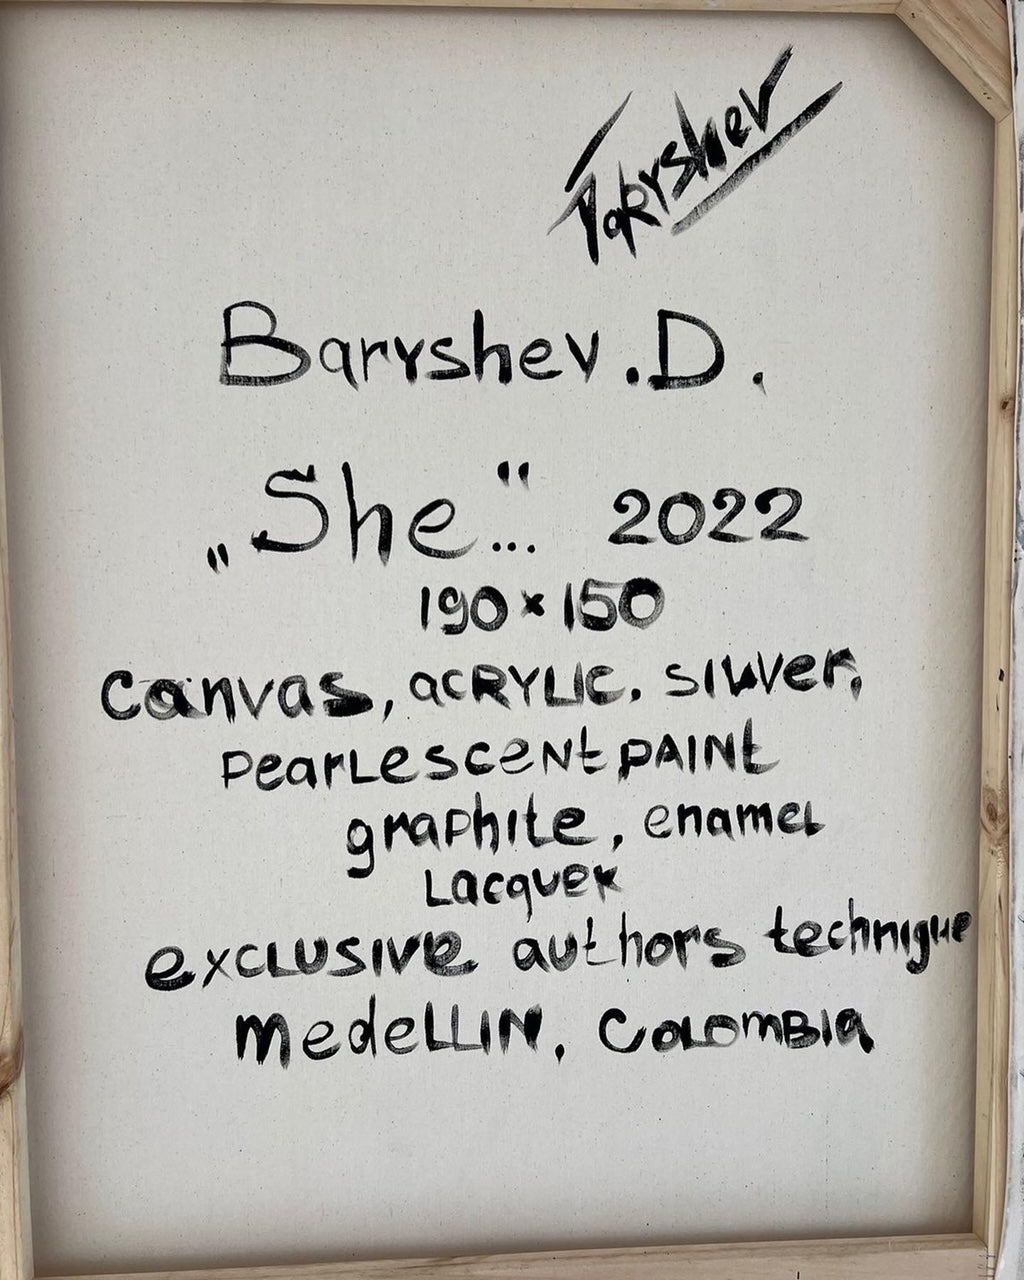 Baryshev
Baryshev.D.
„She..." 2022
190×150
Canvas, acRYLIC, silwver,
pearLescent PAINT
graphite, enameL
Lacquer
exCLUSIVE authors technique
medeLLIN, COLOMBIa